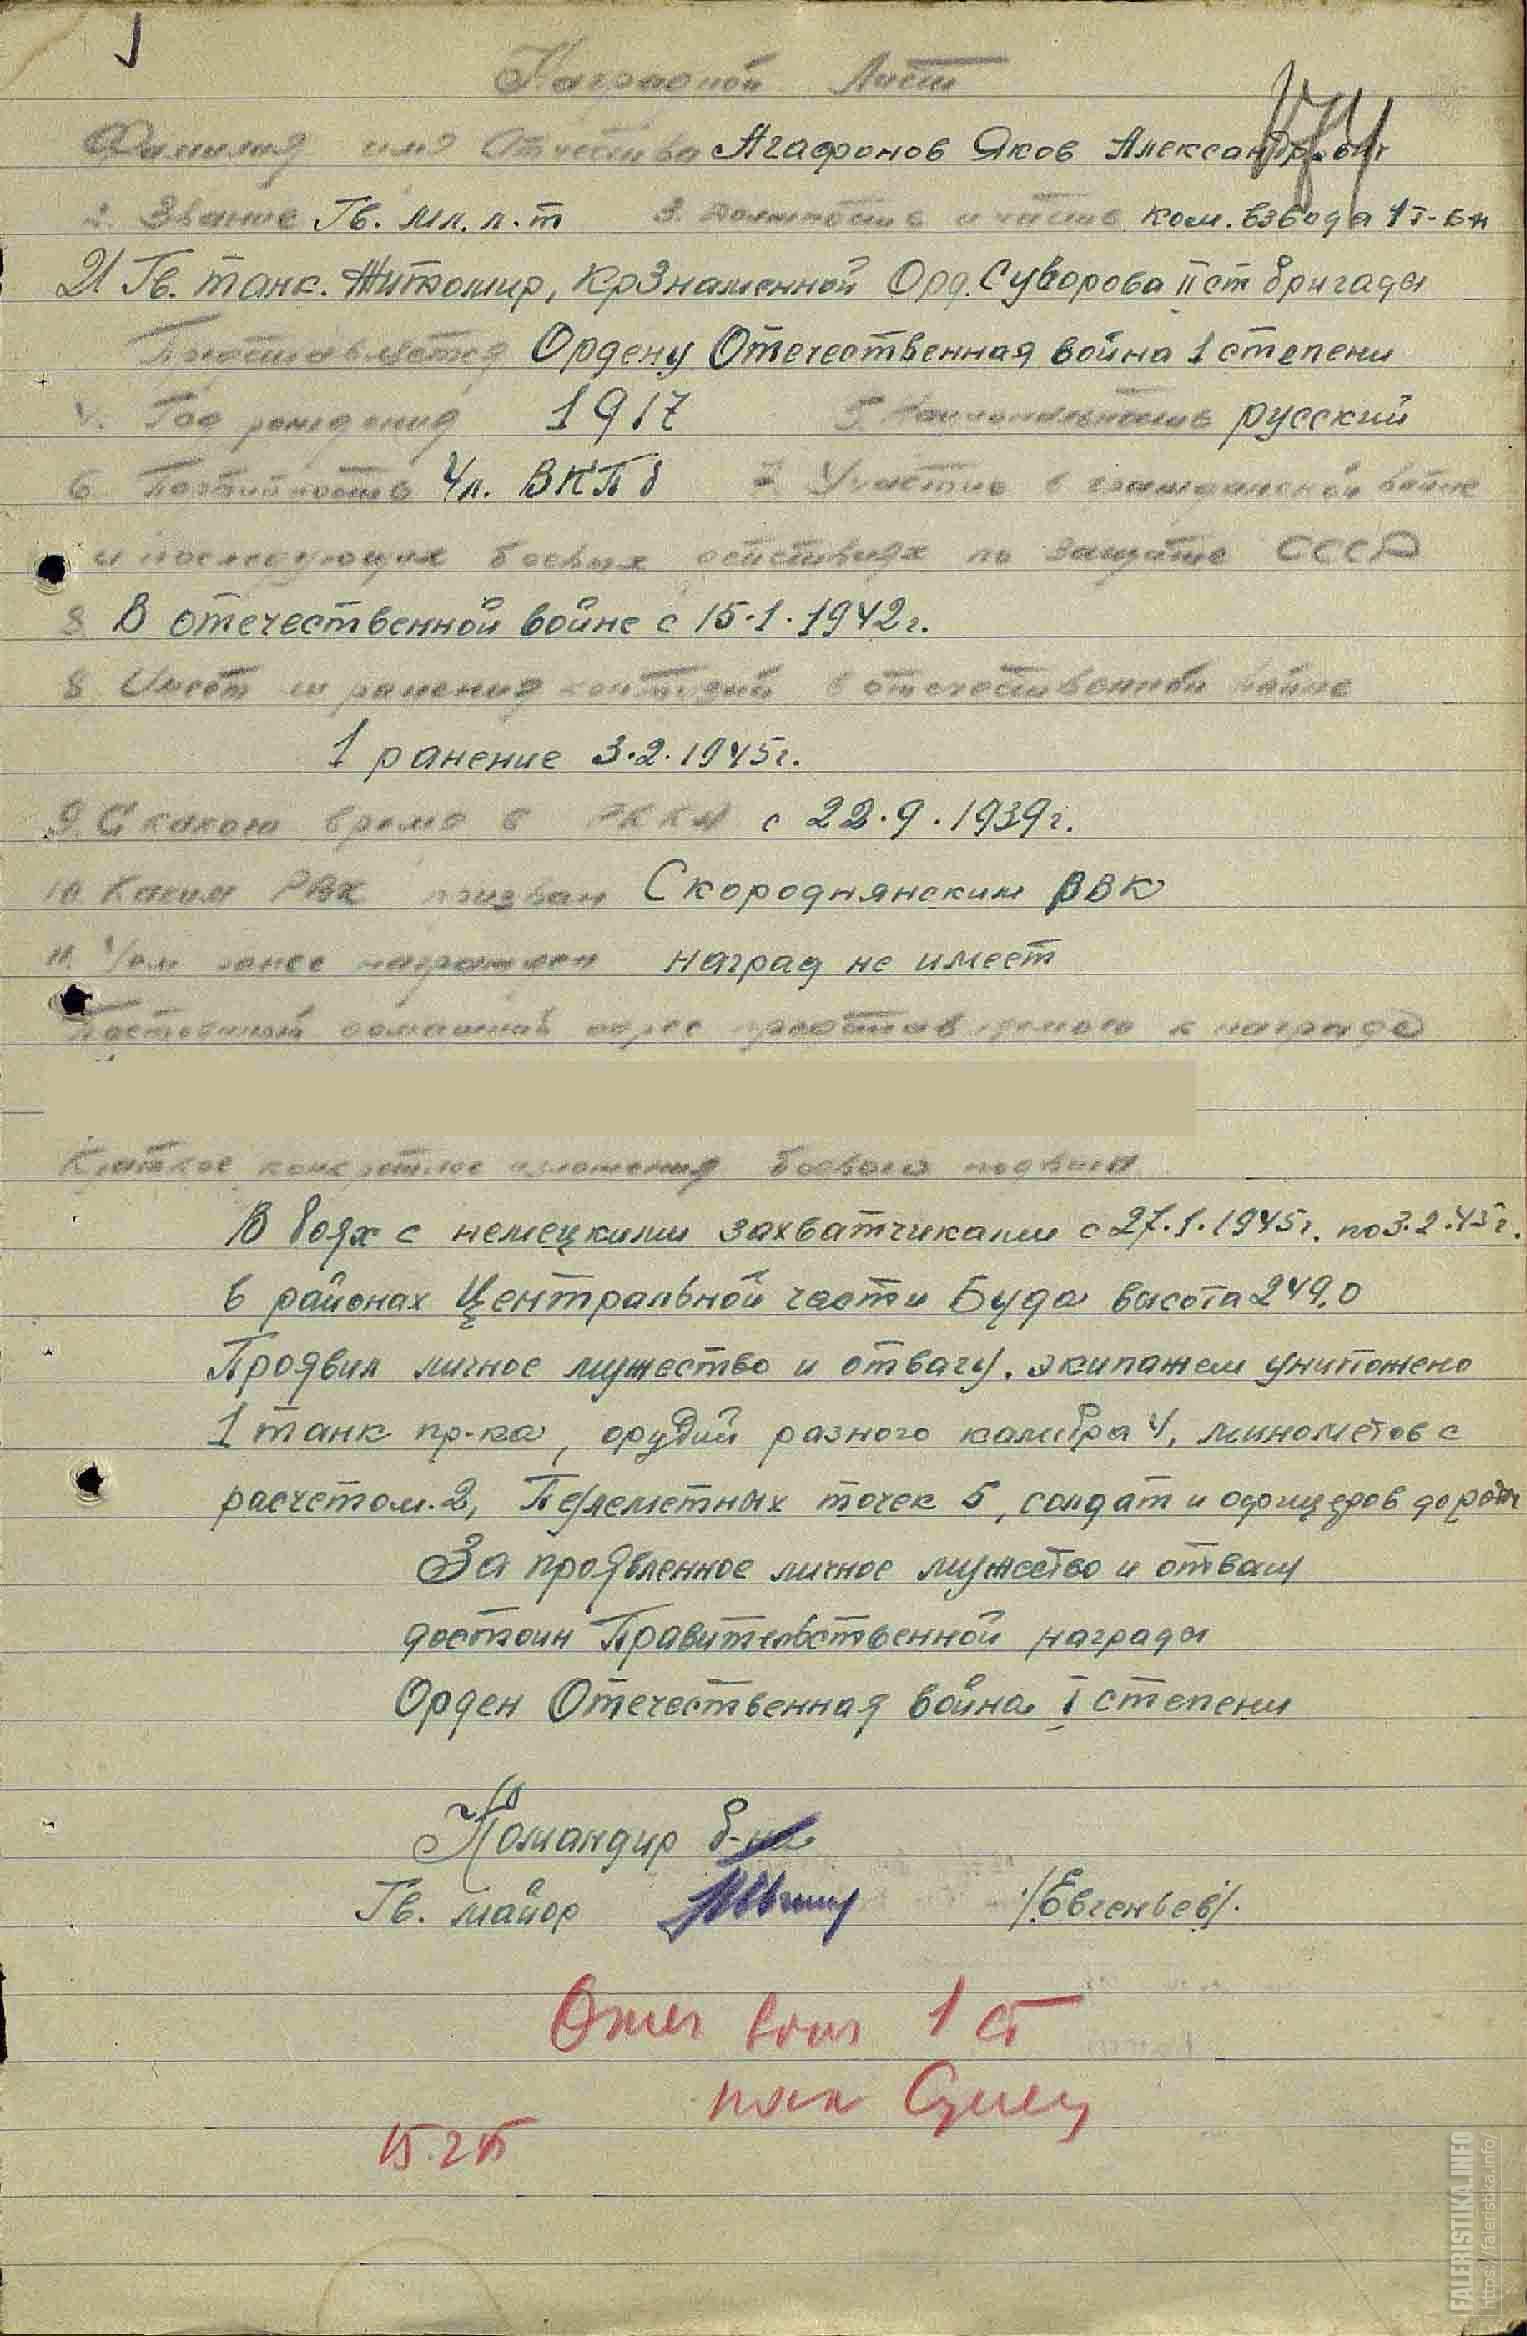 Наградной Лист
Фамилия имя Отчество Агафонов Яков Александрович
2. Звание Гв. мл. л-т 3. Должность и часть ком. взвода 1 т-б-н
21 Гв. танк. Житомир, КрЗнаменной Орд. Суворова II ст бригады
Представляется Ордену Отечественная война 1 степени
4. Год рождения 1917 5. Национальность русский
6 Партийность Чл. ВКПб 7. Участие в гражданской войне
и последующих боевых действиях по защите СССР
8 В отечественной войне с 15.1.1942г.
8 Имеет ли ранения контузий в отечественной войне
1 ранение 3.2.1945г.
9. С какого время в РККА с 22.9.1939г.
10. Каким РВК призван Скороднянским РВК
11. Чем ранее награжден наград не имеет
Постоянный домашний адрес представляемого к награде
Краткое конкретное изложения боевого подвига
В боях с немецкими захватчиками с 27.1.1945г. по 3.2.45г.
в районах Центральной части Буда высота 249,0
Проявил личное мужество и отвагу. экипажем уничтожено
1 танк пр-ка, орудий разного калибра 4, минометов с
расчетом. 2, Пулеметных точек 5, солдат и офицеров до роты
За проявленное личное мужество и отвагу
достоин Правительственной награды
Орден Отечественная война I степени
Командир б-на
Гв. майор /Евгеньев/.
Отеч войн 1 ст
15.2.45
FALERISTIKA.INFO
https://faleristika.info/